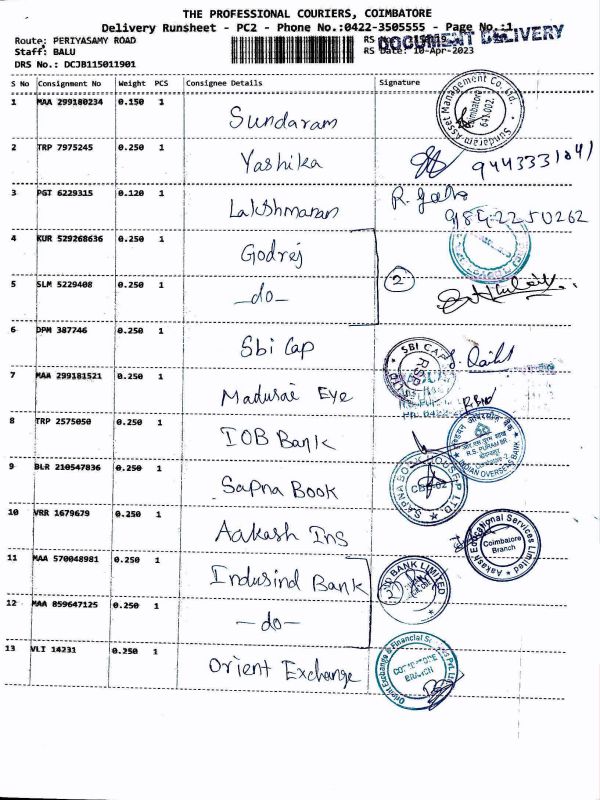 THE PROFESSIONAL COURIERS, COIMBATORE
Delivery Runsheet - PC2 - Phone No.:0422-3505555 - Page No.:1
Route: PERIYASAMY ROAD
DOCUMENT DELIVERY
Staff: BALU
RS Date: 10-Apr-2023
DRS No.: DCJB115011901
S No Consignment No Weight PCS Consignee Details Signature
1 MAA 299180234 0.150 1 Sundaram
Sundaram Asset Management Co. Ltd. Coimbatore 641 002.
2 TRP 7975245 0.250 1 Yashika
3 PGT 6229315 0.120 1 Lakshmanan
4 KUR 529268636 0.250 1 Godrej
5 SLM 5229408 0.250 1 -do- 2
6 DPM 387746 0.250 1 Sbi Cap
SBI CAP
7 MAA 299181521 0.250 1 Madurai Eye
8 TRP 2575050 0.250 1 IOB Bank
R.S. PURAM BR
INDIAN OVERSEAS BANK
9 BLR 210547836 0.250 1 Sapna Book
10 VRR 1679679 0.250 1 Aakash Ins
Aakash Educational Services Limited
Coimbatore Branch
11 MAA 570048981 0.250 1 Indusind Bank
BANK LIMITED
12 MAA 859647125 0.250 1 -do-
13 VLI 14231 0.250 1 Orient Exchange
Orient Exchange & Financial Services Pvt. Ltd.
COIMBATORE BRANCH